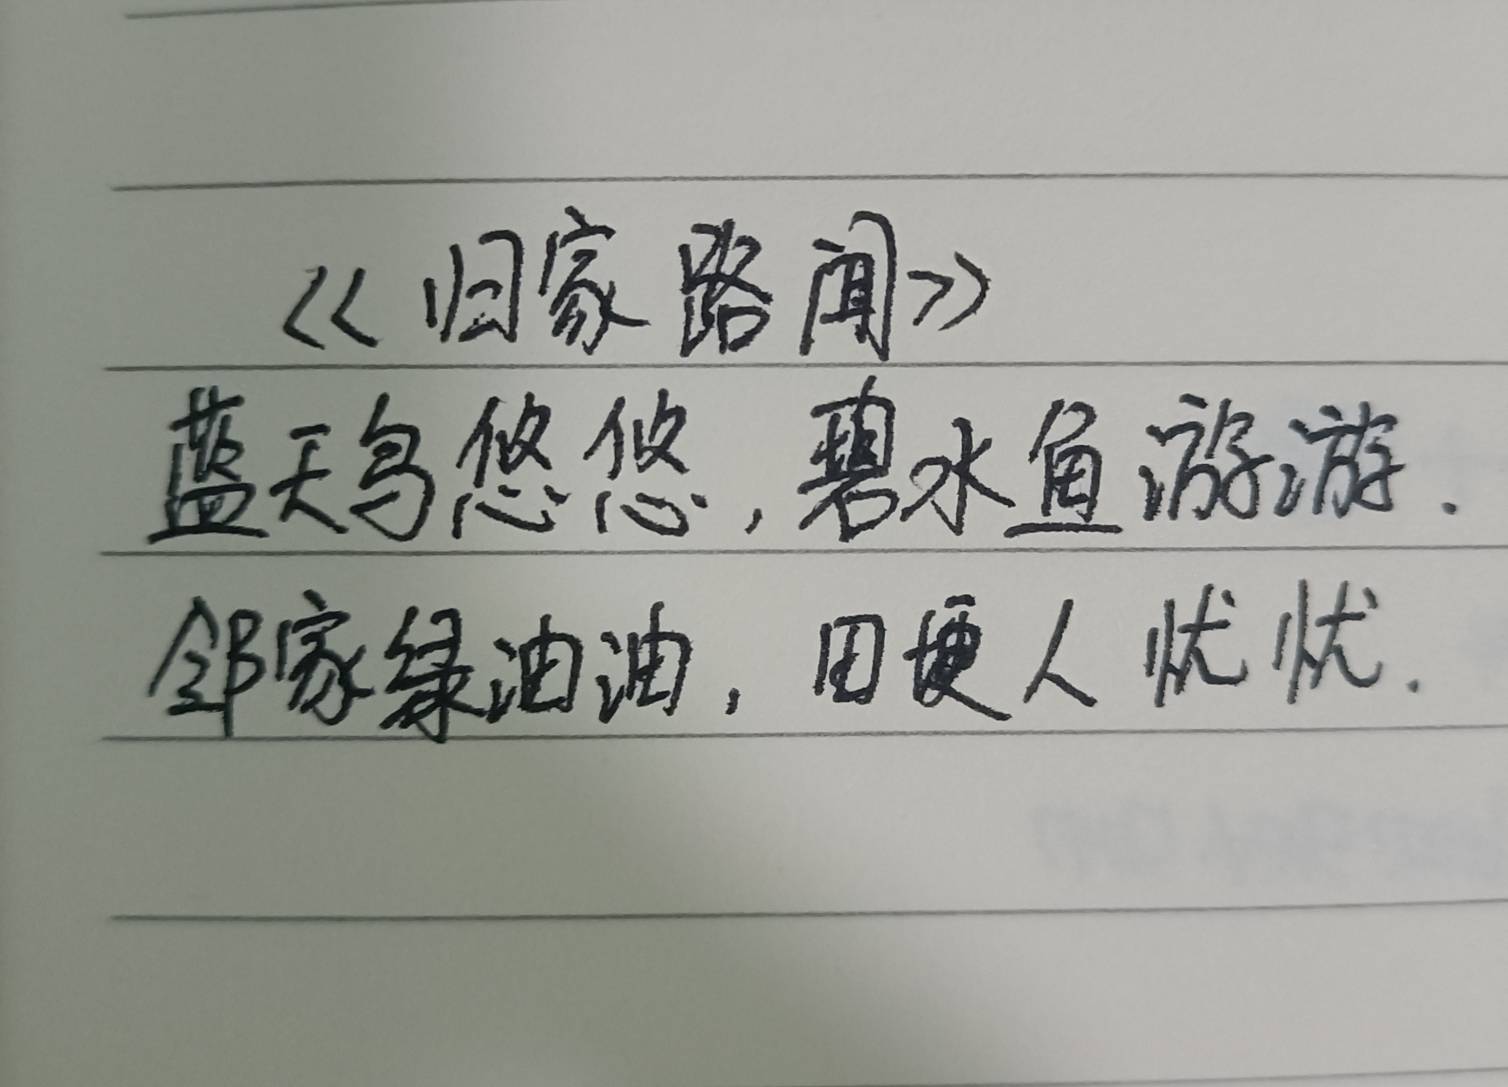 《归家路闻》
蓝天鸟悠悠,碧水鱼游游.
邻家绿油油,田埂人忧忧.